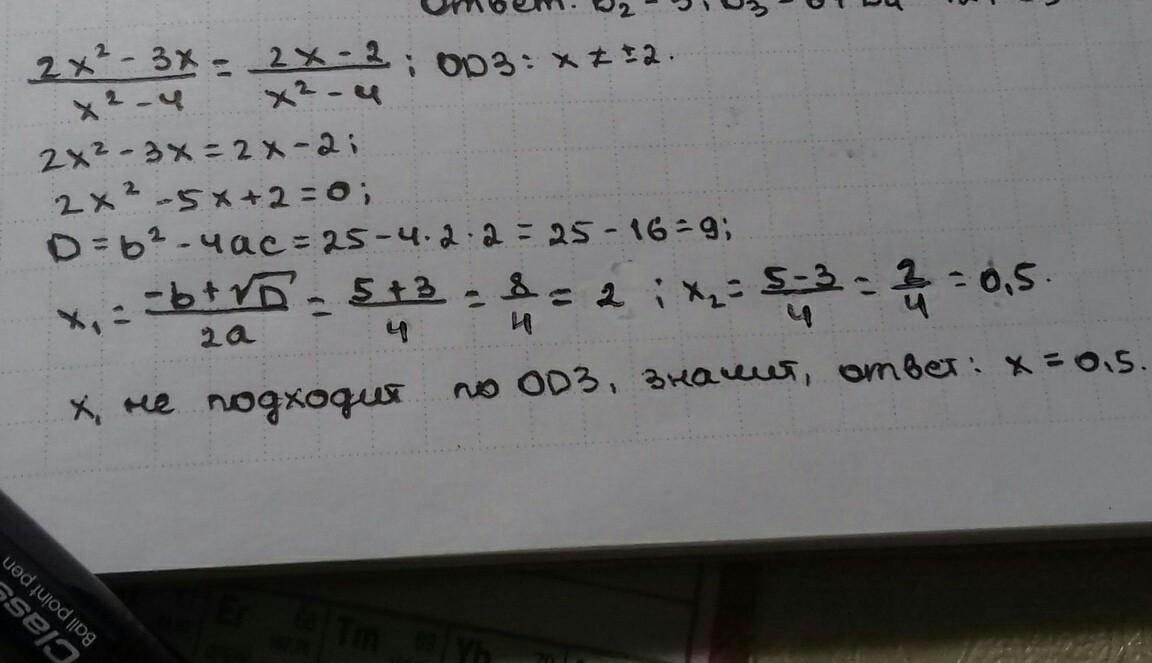 Ответ:
2x² - 3x / x² - 4 = 2x - 2 / x² - 4 ; ОДЗ: x ≠ ±2.
2x² - 3x = 2x - 2;
2x² - 5x + 2 = 0;
D = b² - 4ac = 25 - 4·2·2 = 25 - 16 = 9;
x₁ = -b + √D / 2a = 5 + 3 / 4 = 8 / 4 = 2 ; x₂ = 5 - 3 / 4 = 2 / 4 = 0,5.
x₁ не подходит по ОДЗ, значит, ответ: x = 0,5.
Class
Ball point pen
Er 68
Tm 69
Yb 70